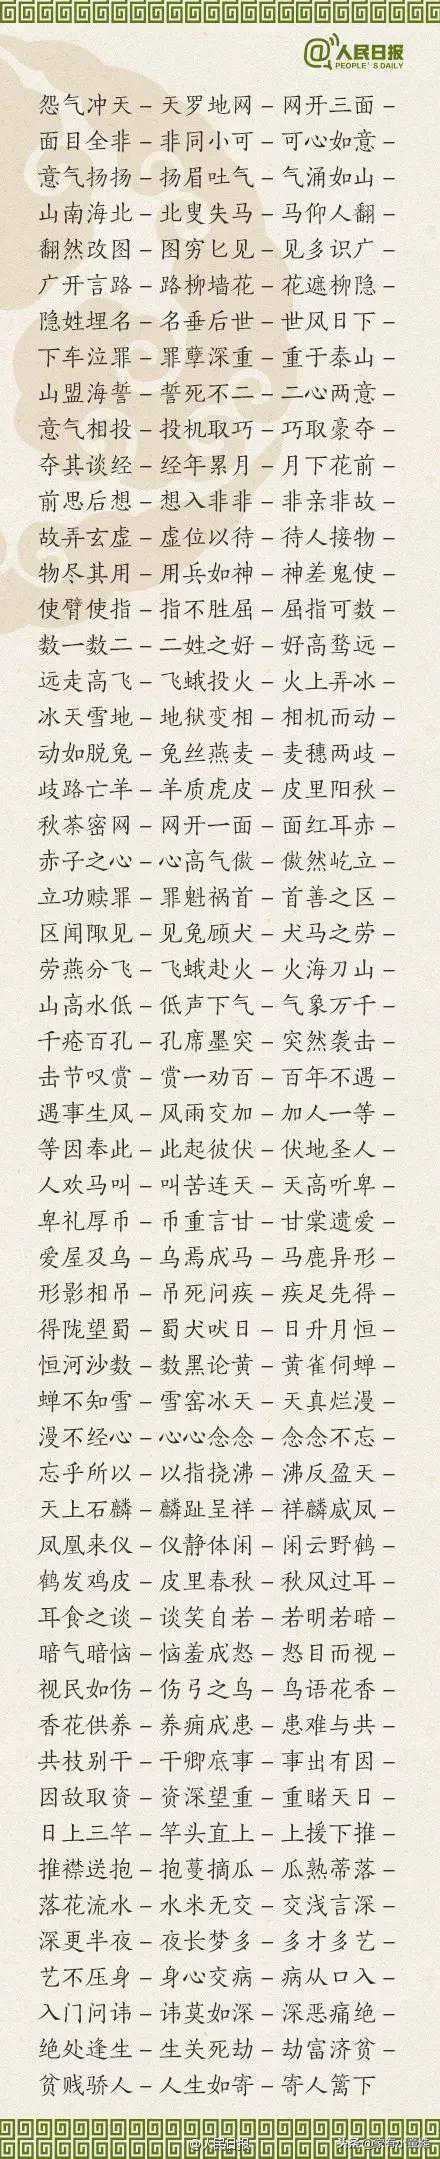 @人民日报
PEOPLE'S DAILY
怨气冲天－天罗地网－网开三面－
面目全非－非同小可－可心如意－
意气扬扬－扬眉吐气－气涌如山－
山南海北－北叟失马－马仰人翻－
翻然改图－图穷匕见－见多识广－
广开言路－路柳墙花－花遮柳隐－
隐姓埋名－名垂后世－世风日下－
下车泣罪－罪孽深重－重于泰山－
山盟海誓－誓死不二－二心两意－
意气相投－投机取巧－巧取豪夺－
夺其谈经－经年累月－月下花前－
前思后想－想入非非－非亲非故－
故弄玄虚－虚位以待－待人接物－
物尽其用－用兵如神－神差鬼使－
使臂使指－指不胜屈－屈指可数－
数一数二－二姓之好－好高骛远－
远走高飞－飞蛾投火－火上弄冰－
冰天雪地－地狱变相－相机而动－
动如脱兔－兔丝燕麦－麦穗两歧－
歧路亡羊－羊质虎皮－皮里阳秋－
秋荼密网－网开一面－面红耳赤－
赤子之心－心高气傲－傲然屹立－
立功赎罪－罪魁祸首－首善之区－
区闻陬见－见兔顾犬－犬马之劳－
劳燕分飞－飞蛾赴火－火海刀山－
山高水低－低声下气－气象万千－
千疮百孔－孔席墨突－突然袭击－
击节叹赏－赏一劝百－百年不遇－
遇事生风－风雨交加－加人一等－
等因奉此－此起彼伏－伏地圣人－
人欢马叫－叫苦连天－天高听卑－
卑礼厚币－币重言甘－甘棠遗爱－
爱屋及乌－乌焉成马－马鹿异形－
形影相吊－吊死问疾－疾足先得－
得陇望蜀－蜀犬吠日－日升月恒－
恒河沙数－数黑论黄－黄雀伺蝉－
蝉不知雪－雪窑冰天－天真烂漫－
漫不经心－心心念念－念念不忘－
忘乎所以－以指挠沸－沸反盈天－
天上石麟－麟趾呈祥－祥麟威凤－
凤凰来仪－仪静体闲－闲云野鹤－
鹤发鸡皮－皮里春秋－秋风过耳－
耳食之谈－谈笑自若－若明若暗－
暗气暗恼－恼羞成怒－怒目而视－
视民如伤－伤弓之鸟－鸟语花香－
香花供养－养痈成患－患难与共－
共枝别干－干卿底事－事出有因－
因敌取资－资深望重－重睹天日－
日上三竿－竿头直上－上援下推－
推襟送抱－抱蔓摘瓜－瓜熟蒂落－
落花流水－水米无交－交浅言深－
深更半夜－夜长梦多－多才多艺－
艺不压身－身心交病－病从口入－
入门问讳－讳莫如深－深恶痛绝－
绝处逢生－生关死劫－劫富济贫－
贫贱骄人－人生如寄－寄人篱下
@人民日报